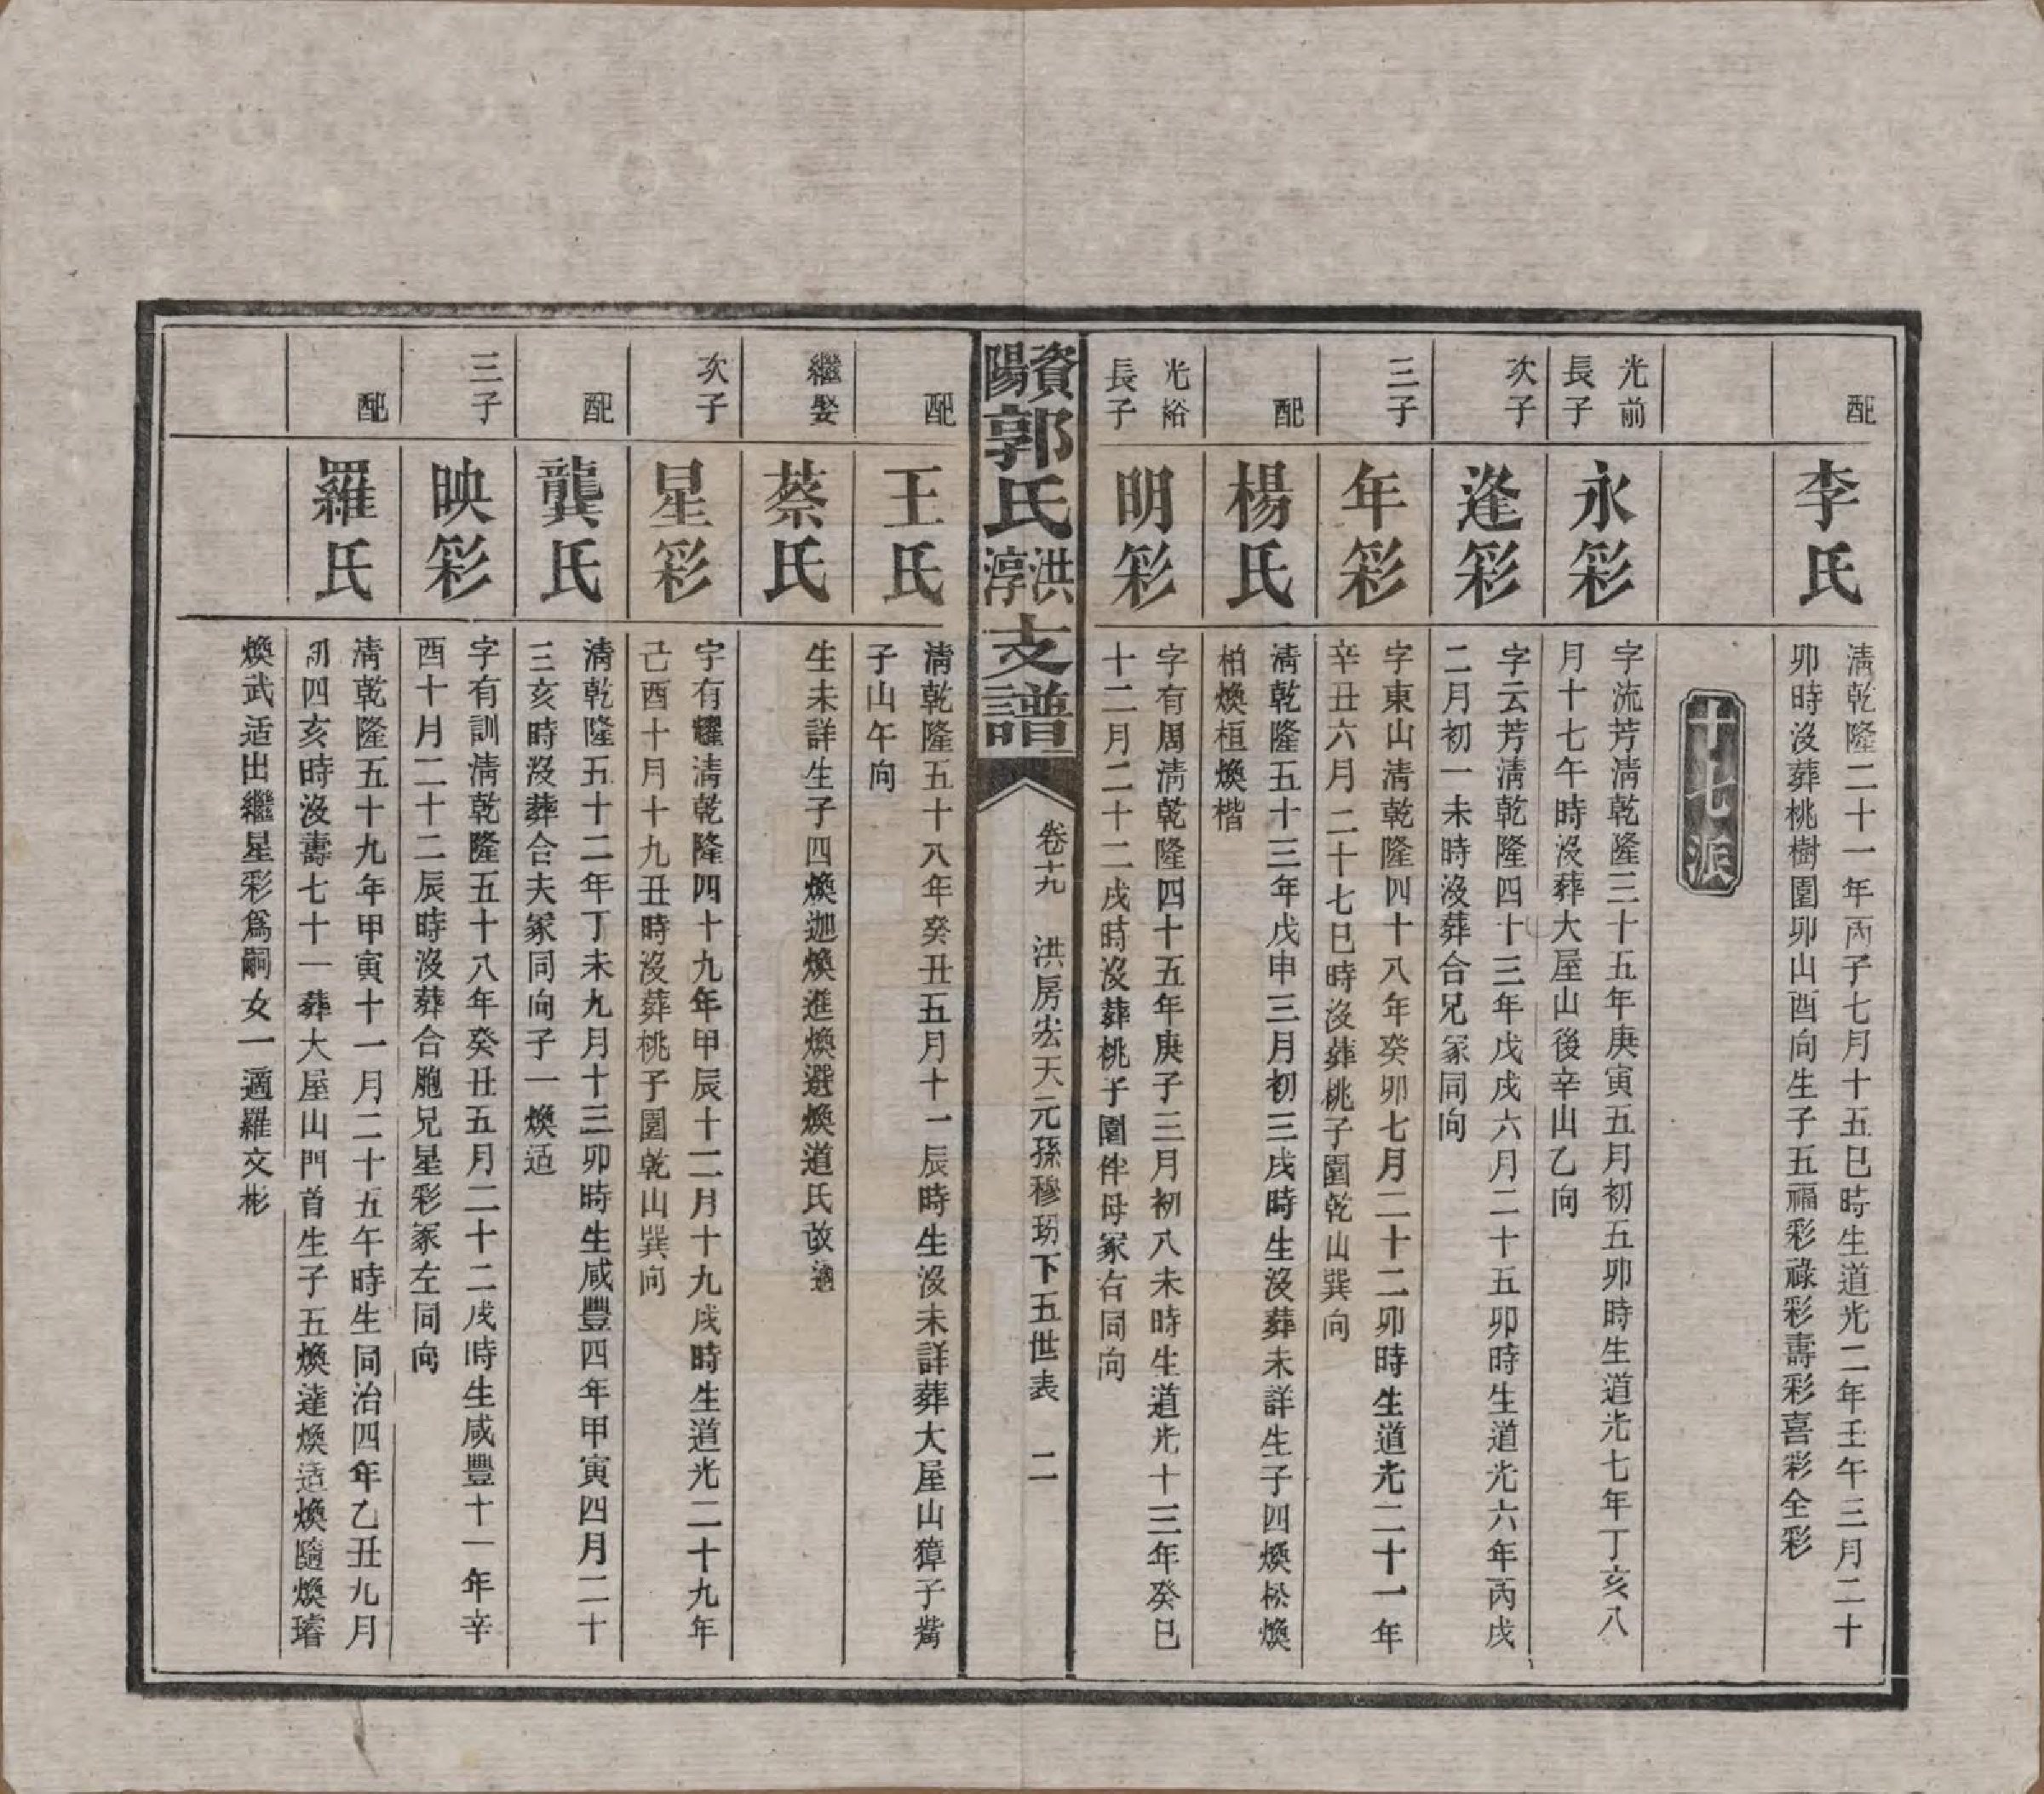 配
李氏
淸乾隆二十一年丙子七月十五巳時生道光二年壬午三月二十
卯時沒葬桃樹園卯山酉向生子五福彩祿彩壽彩喜彩全彩
十七派
光前
長子
永彩
字流芳淸乾隆三十五年庚寅五月初五卯時生道光七年丁亥八
月十七午時沒葬大屋山後辛山乙向
次子
逢彩
字云芳淸乾隆四十三年戊戌六月二十五卯時生道光六年丙戌
二月初一未時沒葬合兄冢同向
三子
年彩
字東山淸乾隆四十八年癸卯七月二十二卯時生道光二十一年
辛丑六月二十七巳時沒葬桃子園乾山巽向
配
楊氏
淸乾隆五十三年戊申三月初三戌時生沒葬未詳生子四煥松煥
柏煥桓煥楷
光裕
長子
明彩
字有周淸乾隆四十五年庚子三月初八未時生道光十三年癸巳
十二月二十二戌時沒葬桃子園伴母冢右同向
資陽郭氏洪淳支譜
卷十九 洪房宏天元孫穆玥下五世表 二
配
王氏
淸乾隆五十八年癸丑五月十一辰時生沒未詳葬大屋山獐子觜
子山午向
繼娶
蔡氏
生未詳生子四煥迦煥進煥選煥道氏改適
次子
星彩
字有耀淸乾隆四十九年甲辰十二月十九戌時生道光二十九年
己酉十月十九丑時沒葬桃子園乾山巽向
配
龔氏
淸乾隆五十二年丁未九月十三卯時生咸豐四年甲寅四月二十
三亥時沒葬合夫冢同向子一煥适
三子
映彩
字有訓淸乾隆五十八年癸丑五月二十二戌時生咸豐十一年辛
酉十月二十二辰時沒葬合胞兄星彩冢左同向
配
羅氏
淸乾隆五十九年甲寅十一月二十五午時生同治四年乙丑九月
初四亥時沒壽七十一葬大屋山門首生子五煥達煥适煥隨煥璿
煥武适出繼星彩爲嗣女一適羅文彬